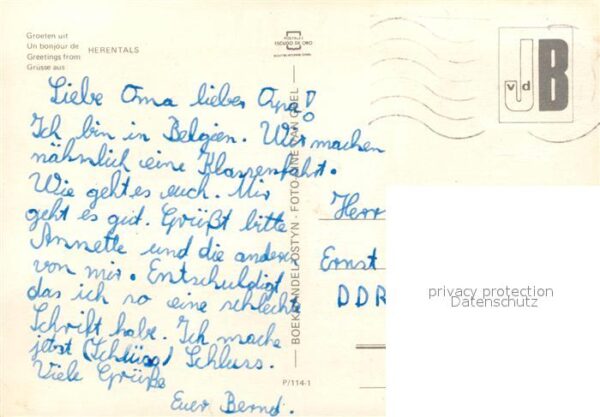 Groeten uit
Un bonjour de
Greetings from
Grüsse aus
HERENTALS
Liebe Oma lieber Opa!
Ich bin in Belgien. Wir machen
nähnlich eine Klassenfahrt.
Wie geht es euch. Mir
geht es gut. Grüßt bitte
Annette und die anderen
von mir. Entschuldigt
das ich so eine schlechte
Schrift habe. Ich mache
jetzt (Schlüss) Schluss.
Viele Grüße
Euer Bernd.
BOEKHANDEL OSTYN - FOTO-CINE VAN GOEL
P/114-1
ESCUDO DE ORO
J
vd
B
Herr
Ernst
DDR
privacy protection
Datenschutz